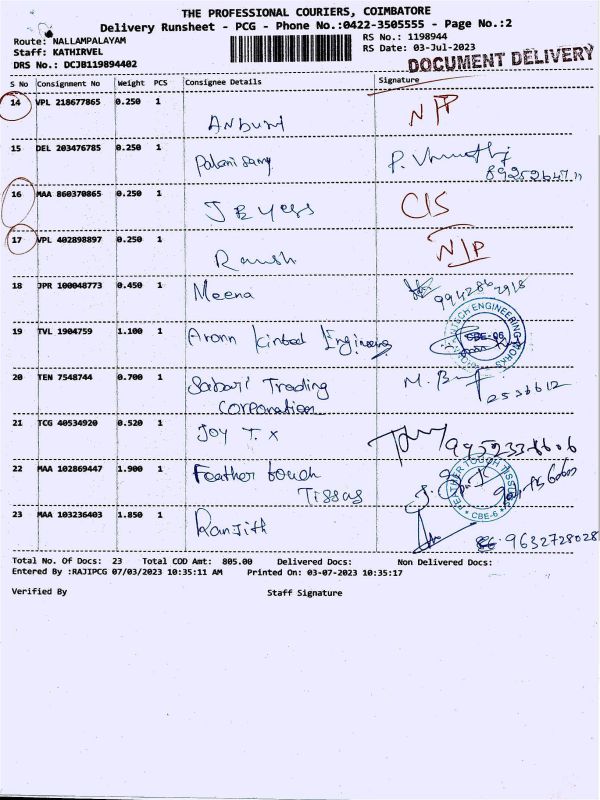 THE PROFESSIONAL COURIERS, COIMBATORE
Delivery Runsheet - PCG - Phone No.:0422-3505555 - Page No.:2
Route: NALLAMPALAYAM
Staff: KATHIRVEL
DRS No.: DCJB119894402
RS No.: 1198944
RS Date: 03-Jul-2023
DOCUMENT DELIVERY
S No Consignment No Weight PCS Consignee Details Signature
14 VPL 218677865 0.250 1 N/P
15 DEL 203476785 0.250 1 Palanisamy
16 MAA 860370865 0.250 1 C/S
17 VPL 402898897 0.250 1 N/P
18 JPR 100048773 0.450 1 Meena 9942862918
19 TVL 1904759 1.100 1 ENGINEERING WORKS CBE-06
20 TEN 7548744 0.700 1 Sabari Trading Corporation 2536612
21 TCG 40534920 0.520 1 Joy T.x
22 MAA 102869447 1.900 1 Feather touch Tissas FEATHER TOUCH CBE-6
23 MAA 103236403 1.850 1 Ranjith 9632728028
Total No. Of Docs: 23 Total COD Amt: 805.00 Delivered Docs: Non Delivered Docs:
Entered By :RAJIPCG 07/03/2023 10:35:11 AM Printed On: 03-07-2023 10:35:17
Verified By Staff Signature